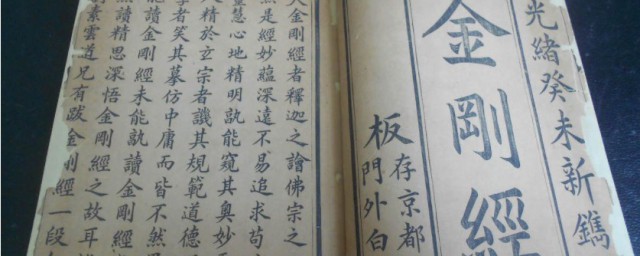 光緒癸未新鐫
金剛經
板存京都
門外白
金剛經者釋迦之譮佛宗之
然是經妙蘊深遠不易追求苟
慧心地精明孰能窺其奥妙
人精於玄宗者譏其規範道德
學者笑其摹仿中庸而皆不然
能讀金剛經未能孰讀金剛經
讀精思深悟金剛經之故耳
素雲道兄有跋金剛經一段